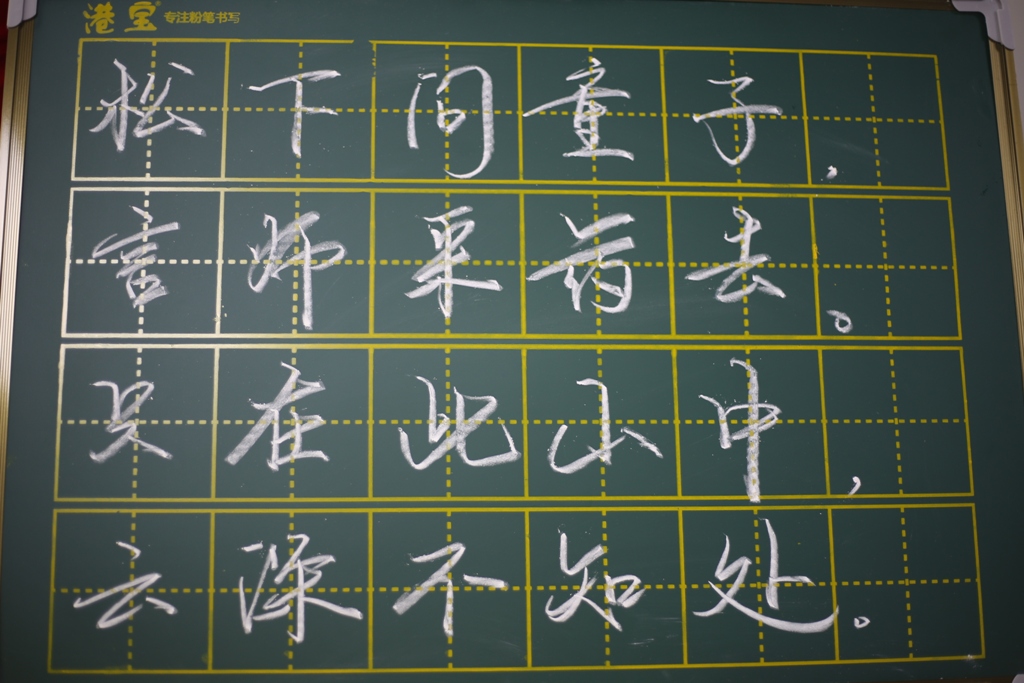 港宝 专注粉笔书写
松下问童子,
言师采药去。
只在此山中,
云深不知处。